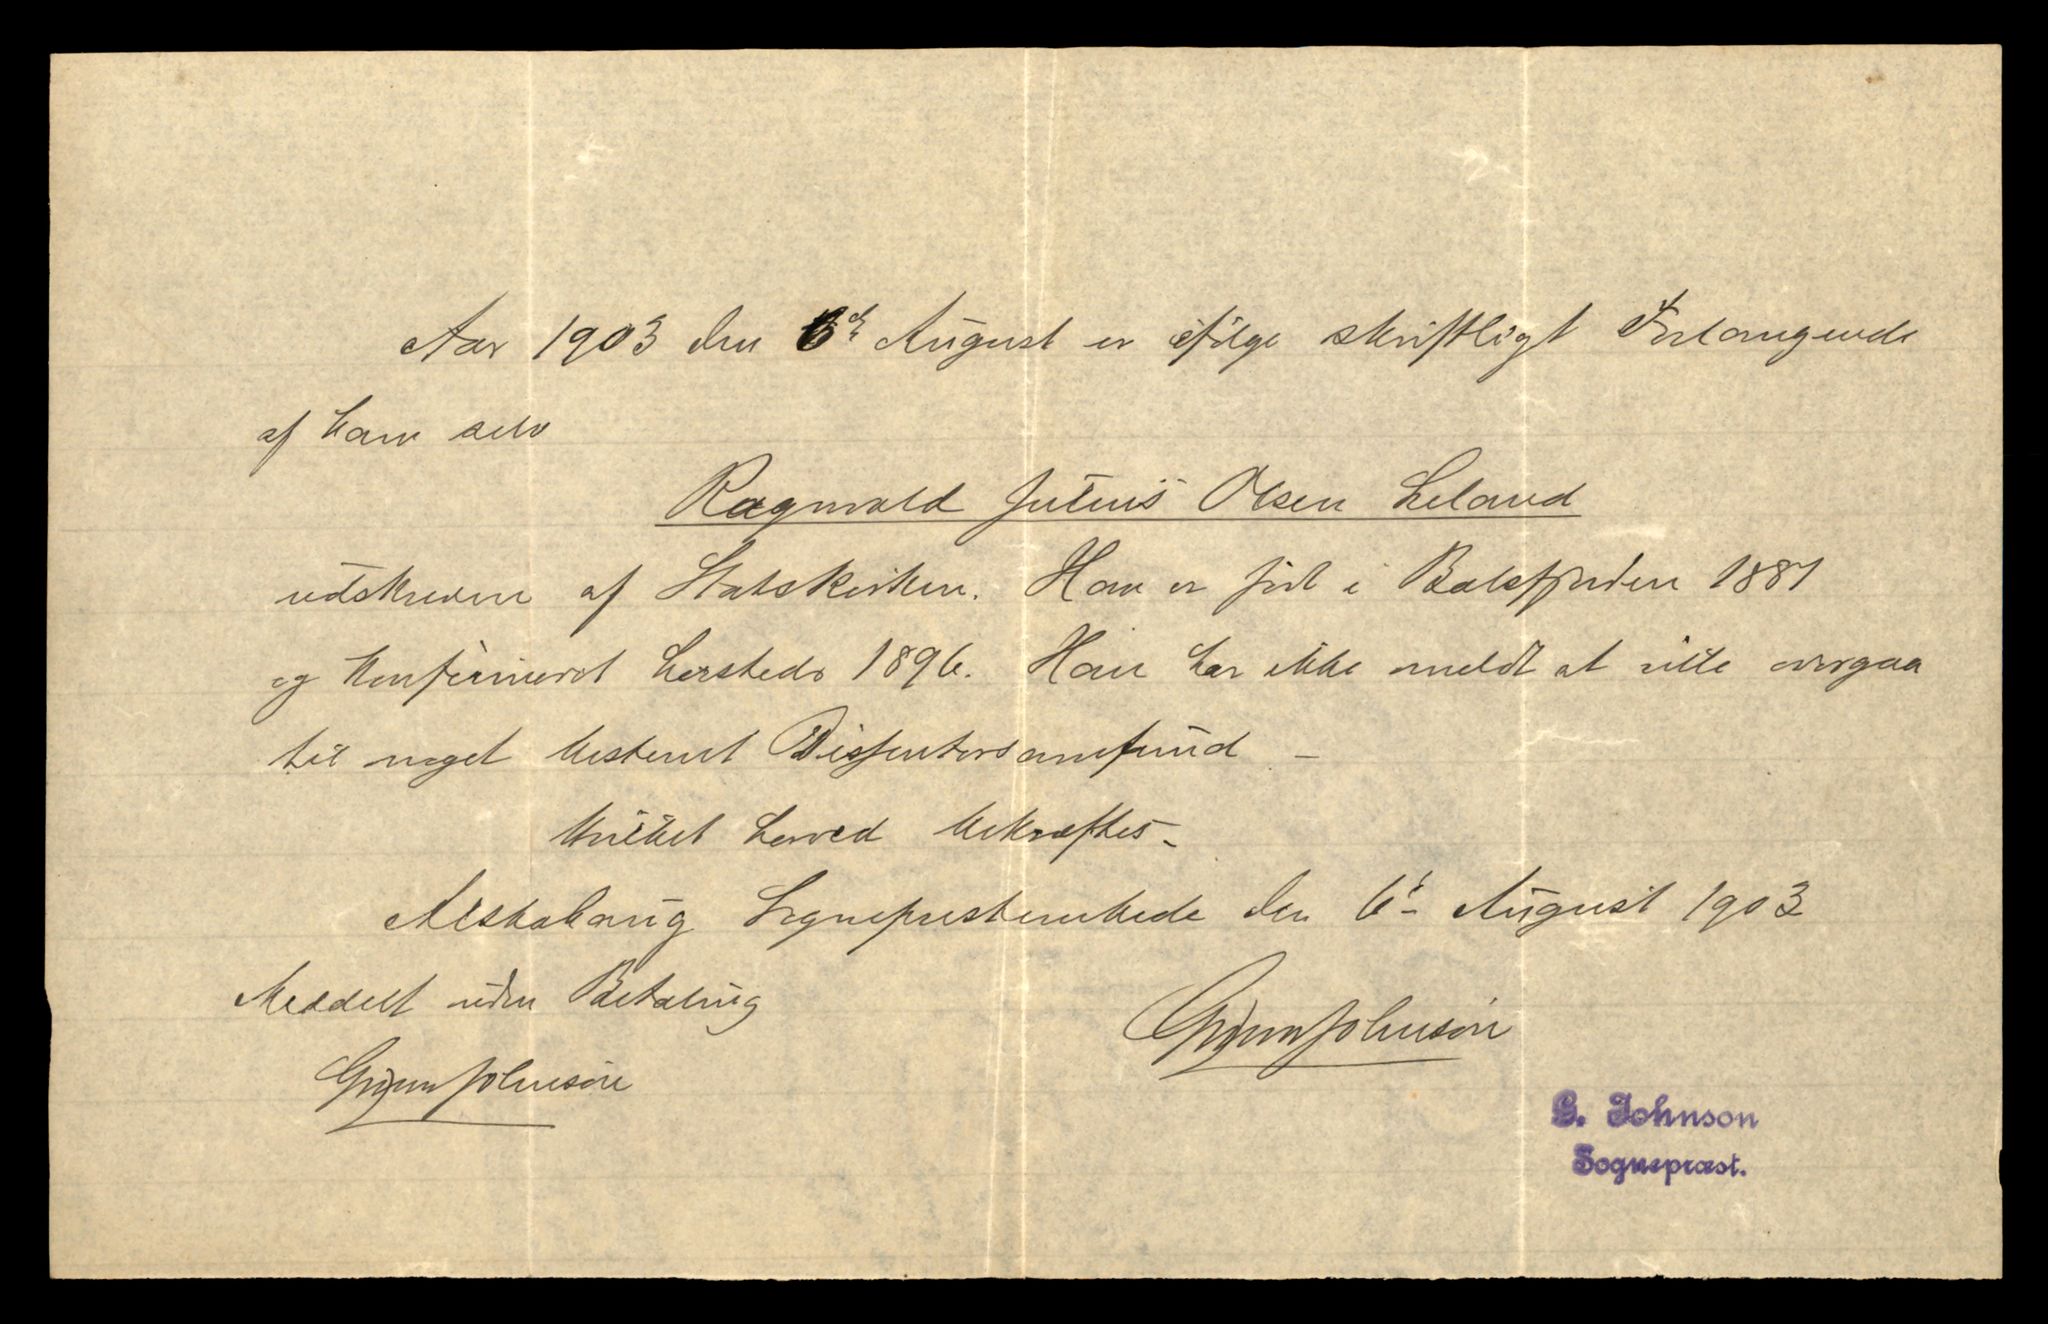 Aar 1903 den 6te August er ifølge skriftligt Forlangende
af ham selv
Ragnvald Julius Olsen Leland
udskreven af Statskirken. Han er født i Balsfjorden 1881
og konfirmeret hersteds 1896. Han har ikke meldt at ville overgaa
til noget bestemt Dissentersamfund –
hvilket herved bekræftes –
Alstahaug Sognepresteembede den 6te August 1903
Meddelt uden Betaling
Johnson
Johnson
G. Johnson
Sognepræst.